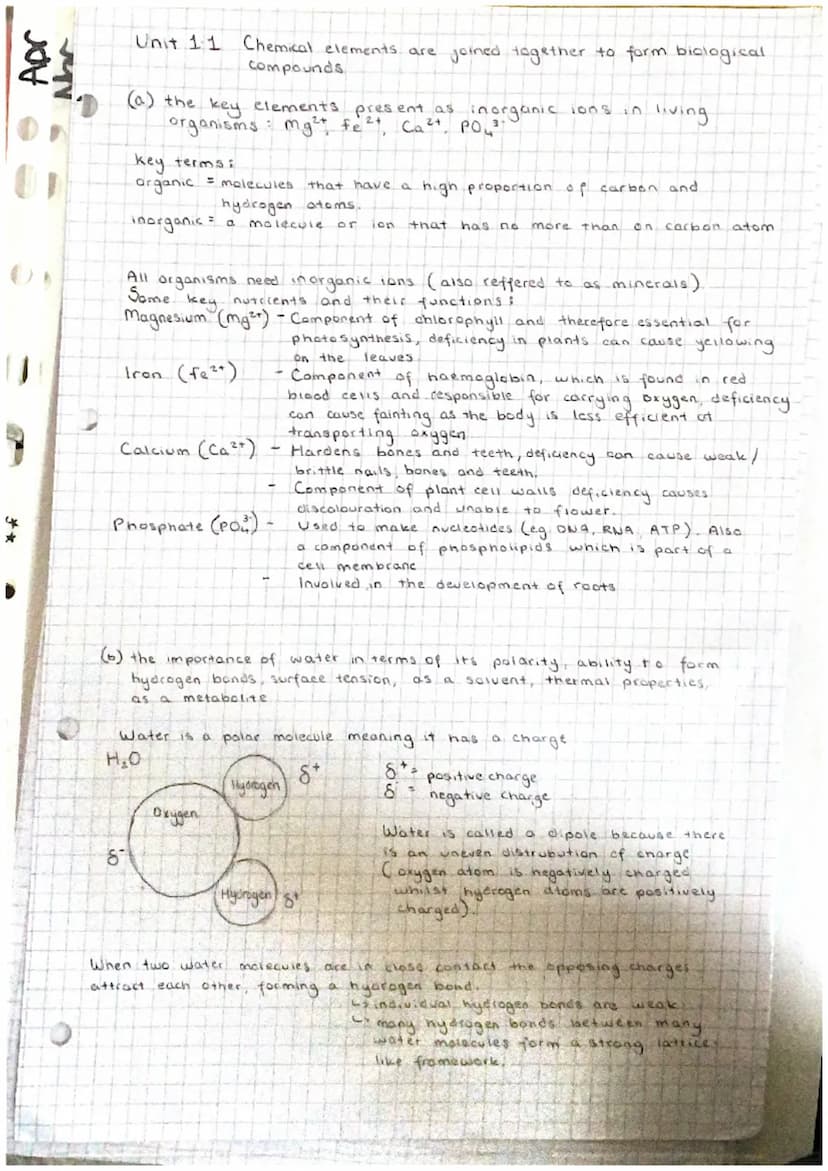 Apr
Nar
Unit 1.1 Chemical elements are joined together to form biological
compounds
(a) the key elements present as inorganic ions in living
organisms : Mg²⁺, fe²⁺, Ca²⁺, PO₄³⁻
Key terms :
organic = molecules that have a high proportion of carbon and
hydrogen atoms.
inorganic = a molecule or ion that has no more than on carbon atom
All organisms need inorganic ions (also reffered to as minerals)
Some key nutrients and their functions :
Magnesium (mg²⁺) - Component of chlorophyll and therefore essential for
photosynthesis, deficiency in plants can cause yellowing
on the leaves
Iron (fe²⁺) - Component of haemoglobin, which is found in red
blood cells and responsible for carrying oxygen, deficiency
can cause fainting as the body is less efficient at
transporting oxygen
Calcium (Ca²⁺) - Hardens bones and teeth, deficiency can cause weak/
brittle nails, bones and teeth.
- Component of plant cell walls deficiency causes
discolouration and unable to flower.
Phosphate (PO₄³⁻) - Used to make nucleotides (eg. DNA, RNA, ATP). Also
a component of phospholipids which is part of a
cell membrane
- Involved in the development of roots
(b) the importance of water in terms of its polarity, ability to form
hydrogen bonds, surface tension, as a solvent, thermal properties,
as a metabolite
Water is a polar molecule meaning it has a charge
H₂O
Hydrogen δ⁺
δ⁺ = positive charge
δ⁻ = negative charge
Oxygen
δ⁻
Hydrogen δ⁺
Water is called a dipole because there
is an uneven distrubution of charge
(oxygen atom is negatively charged
whilst hydrogen atoms are positively
charged).
When two water molecules are in close contact the opposing charges
attract each other, forming a hydrogen bond.
↳ individual hydrogen bonds are weak
↳ many hydrogen bonds between many
water molecules form a strong lattice
like framework.